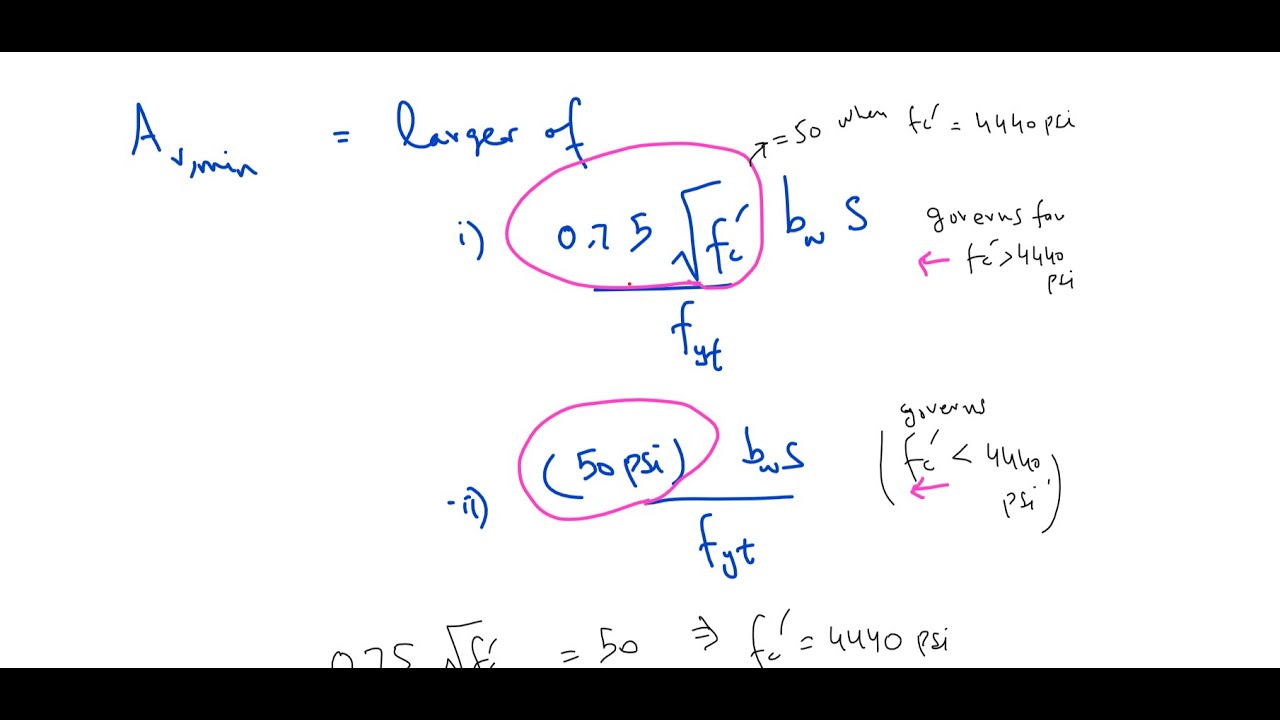 A_v,min = larger of
= 50 when fc' = 4440 psi
i) 0.75 √fc' b_w s
f_yt
governs for
← fc' > 4440
psi
ii) (50 psi) b_w s
f_yt
governs
(fc' < 4440
← psi)
0.75 √fc' = 50 ⇒ fc' = 4440 psi